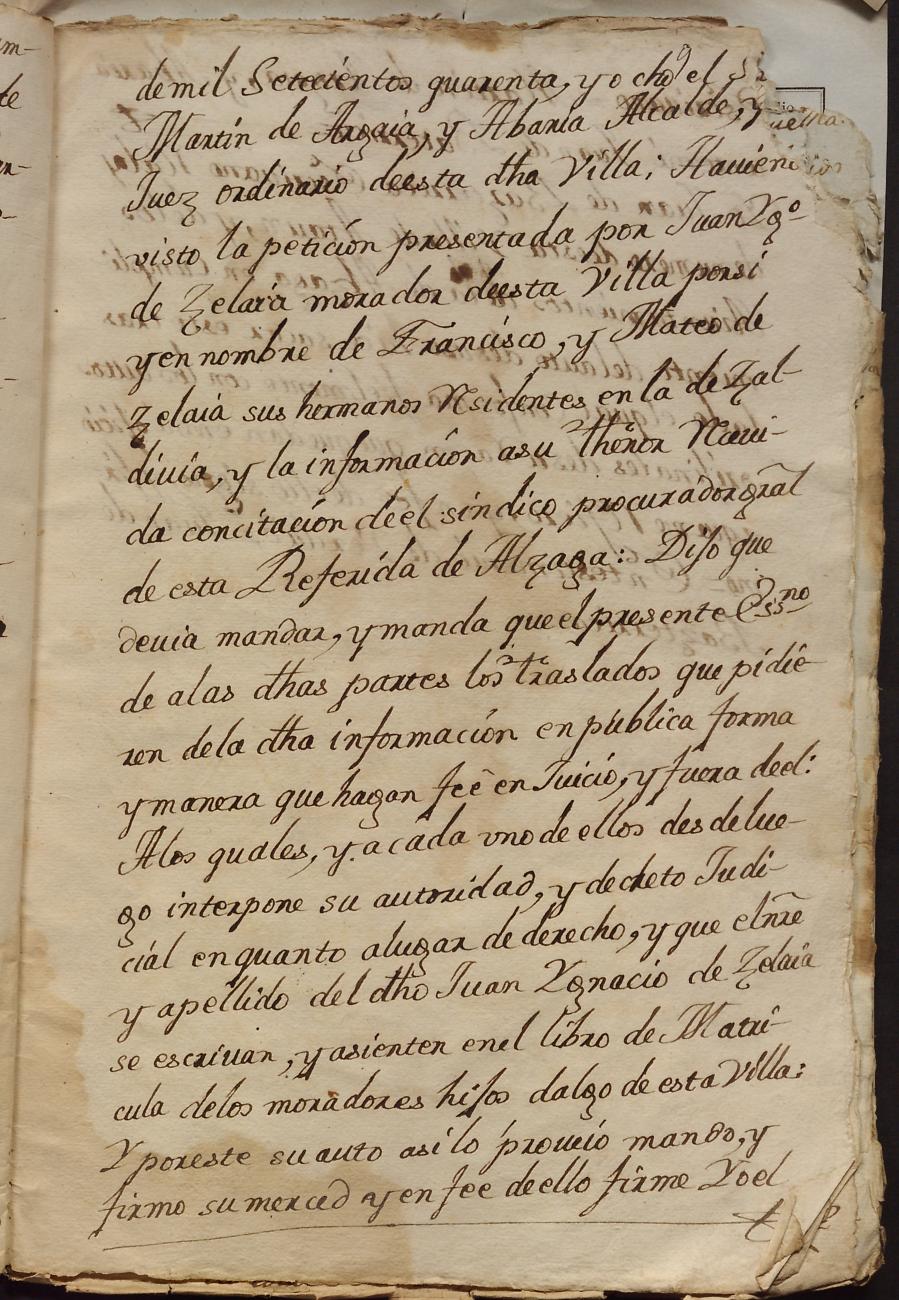 de mil Setecientos quarenta, y ocho, el
Martin de Argaia, y Abaria Alcalde, y
Juez ordinario deesta dha Villa; Hauien
visto la petición presentada por Juan Ygº
de Zelaia morador deesta Villa porsi
y en nombre de Francisco, y Mateo de
Zelaia sus hermanos Rsidentes en la de Zal-
diuia, y la información a su thenor Reciui-
da con citación de el sindico procurador gral
de esta Referida de Alzaga: Dijo que
deuia mandar, y manda que el presente Essno
de a las dhas partes los traslados que pidie-
ren de la dha información en publica forma
y manera que hagan feê en Juicio, y fuera deel:
A los quales, y a cada vno de ellos des de lue-
go interpone su autoridad, y decreto Judi-
cial en quanto a lugar de derecho, y que el nre
y apellido del dho Juan Ygnacio de Zelaia
se escriuan, y asienten en el libro de Matri-
cula de los moradores hijos dalgo de esta Villa:
Y por este su auto asi lo proueió mando, y
firmo su merced y en fee de ello firme Yo el